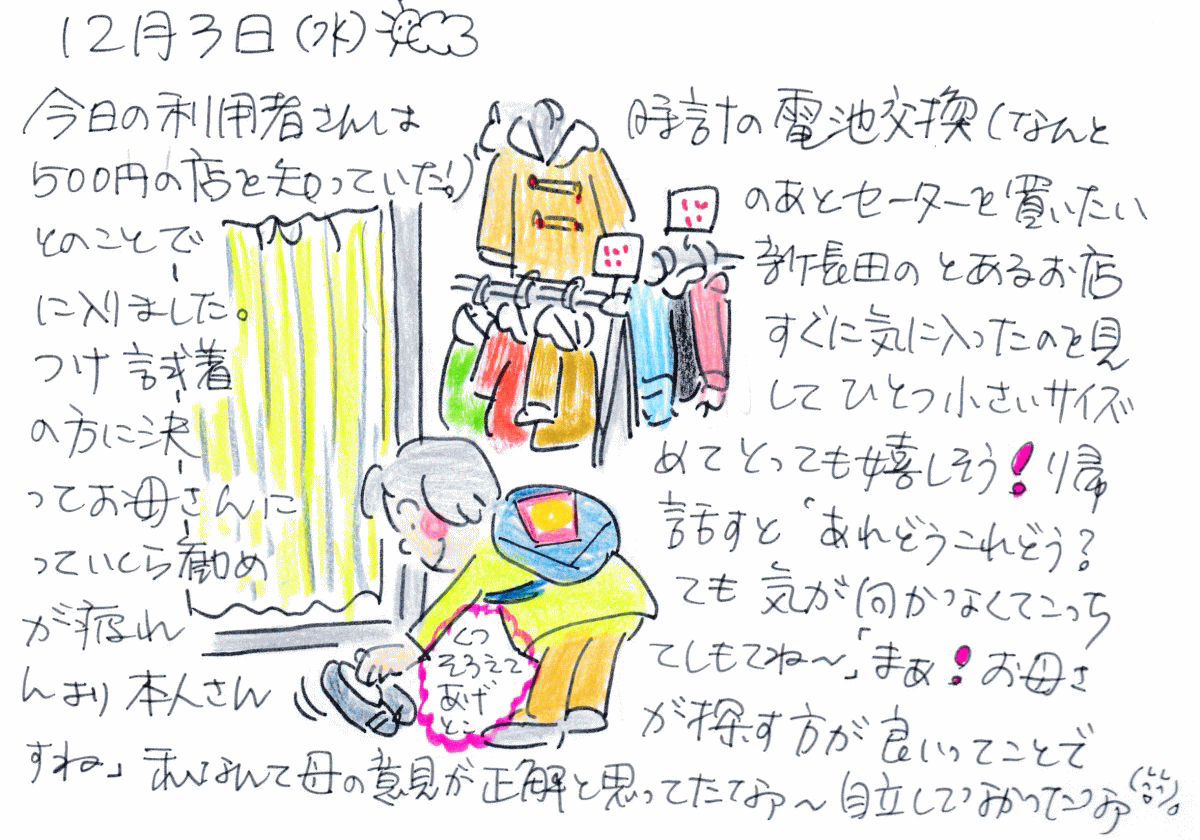 12月3日(水)
今日の利用者さんは 時計の電池交換(なんと
500円の店を知っていた!) のあとセーターを買いたい
とのことで 新長田のとあるお店
に入りました。 すぐに気に入ったのを見
つけ試着 してひとつ小さいサイズ
の方に決 めてとっても嬉しそう!帰
ってお母さんに 話すと「あれどうこれどう?
っていくら勧め ても気が向かなくてこっち
が疲れ てしもてね〜」「まぁ!お母さ
んより本人さん が探す方が良いってことで
すね」私なんて母の意見が正解と思ってたなァ〜自立してなかったなァ
くつ
そろえて
あげ
とこ